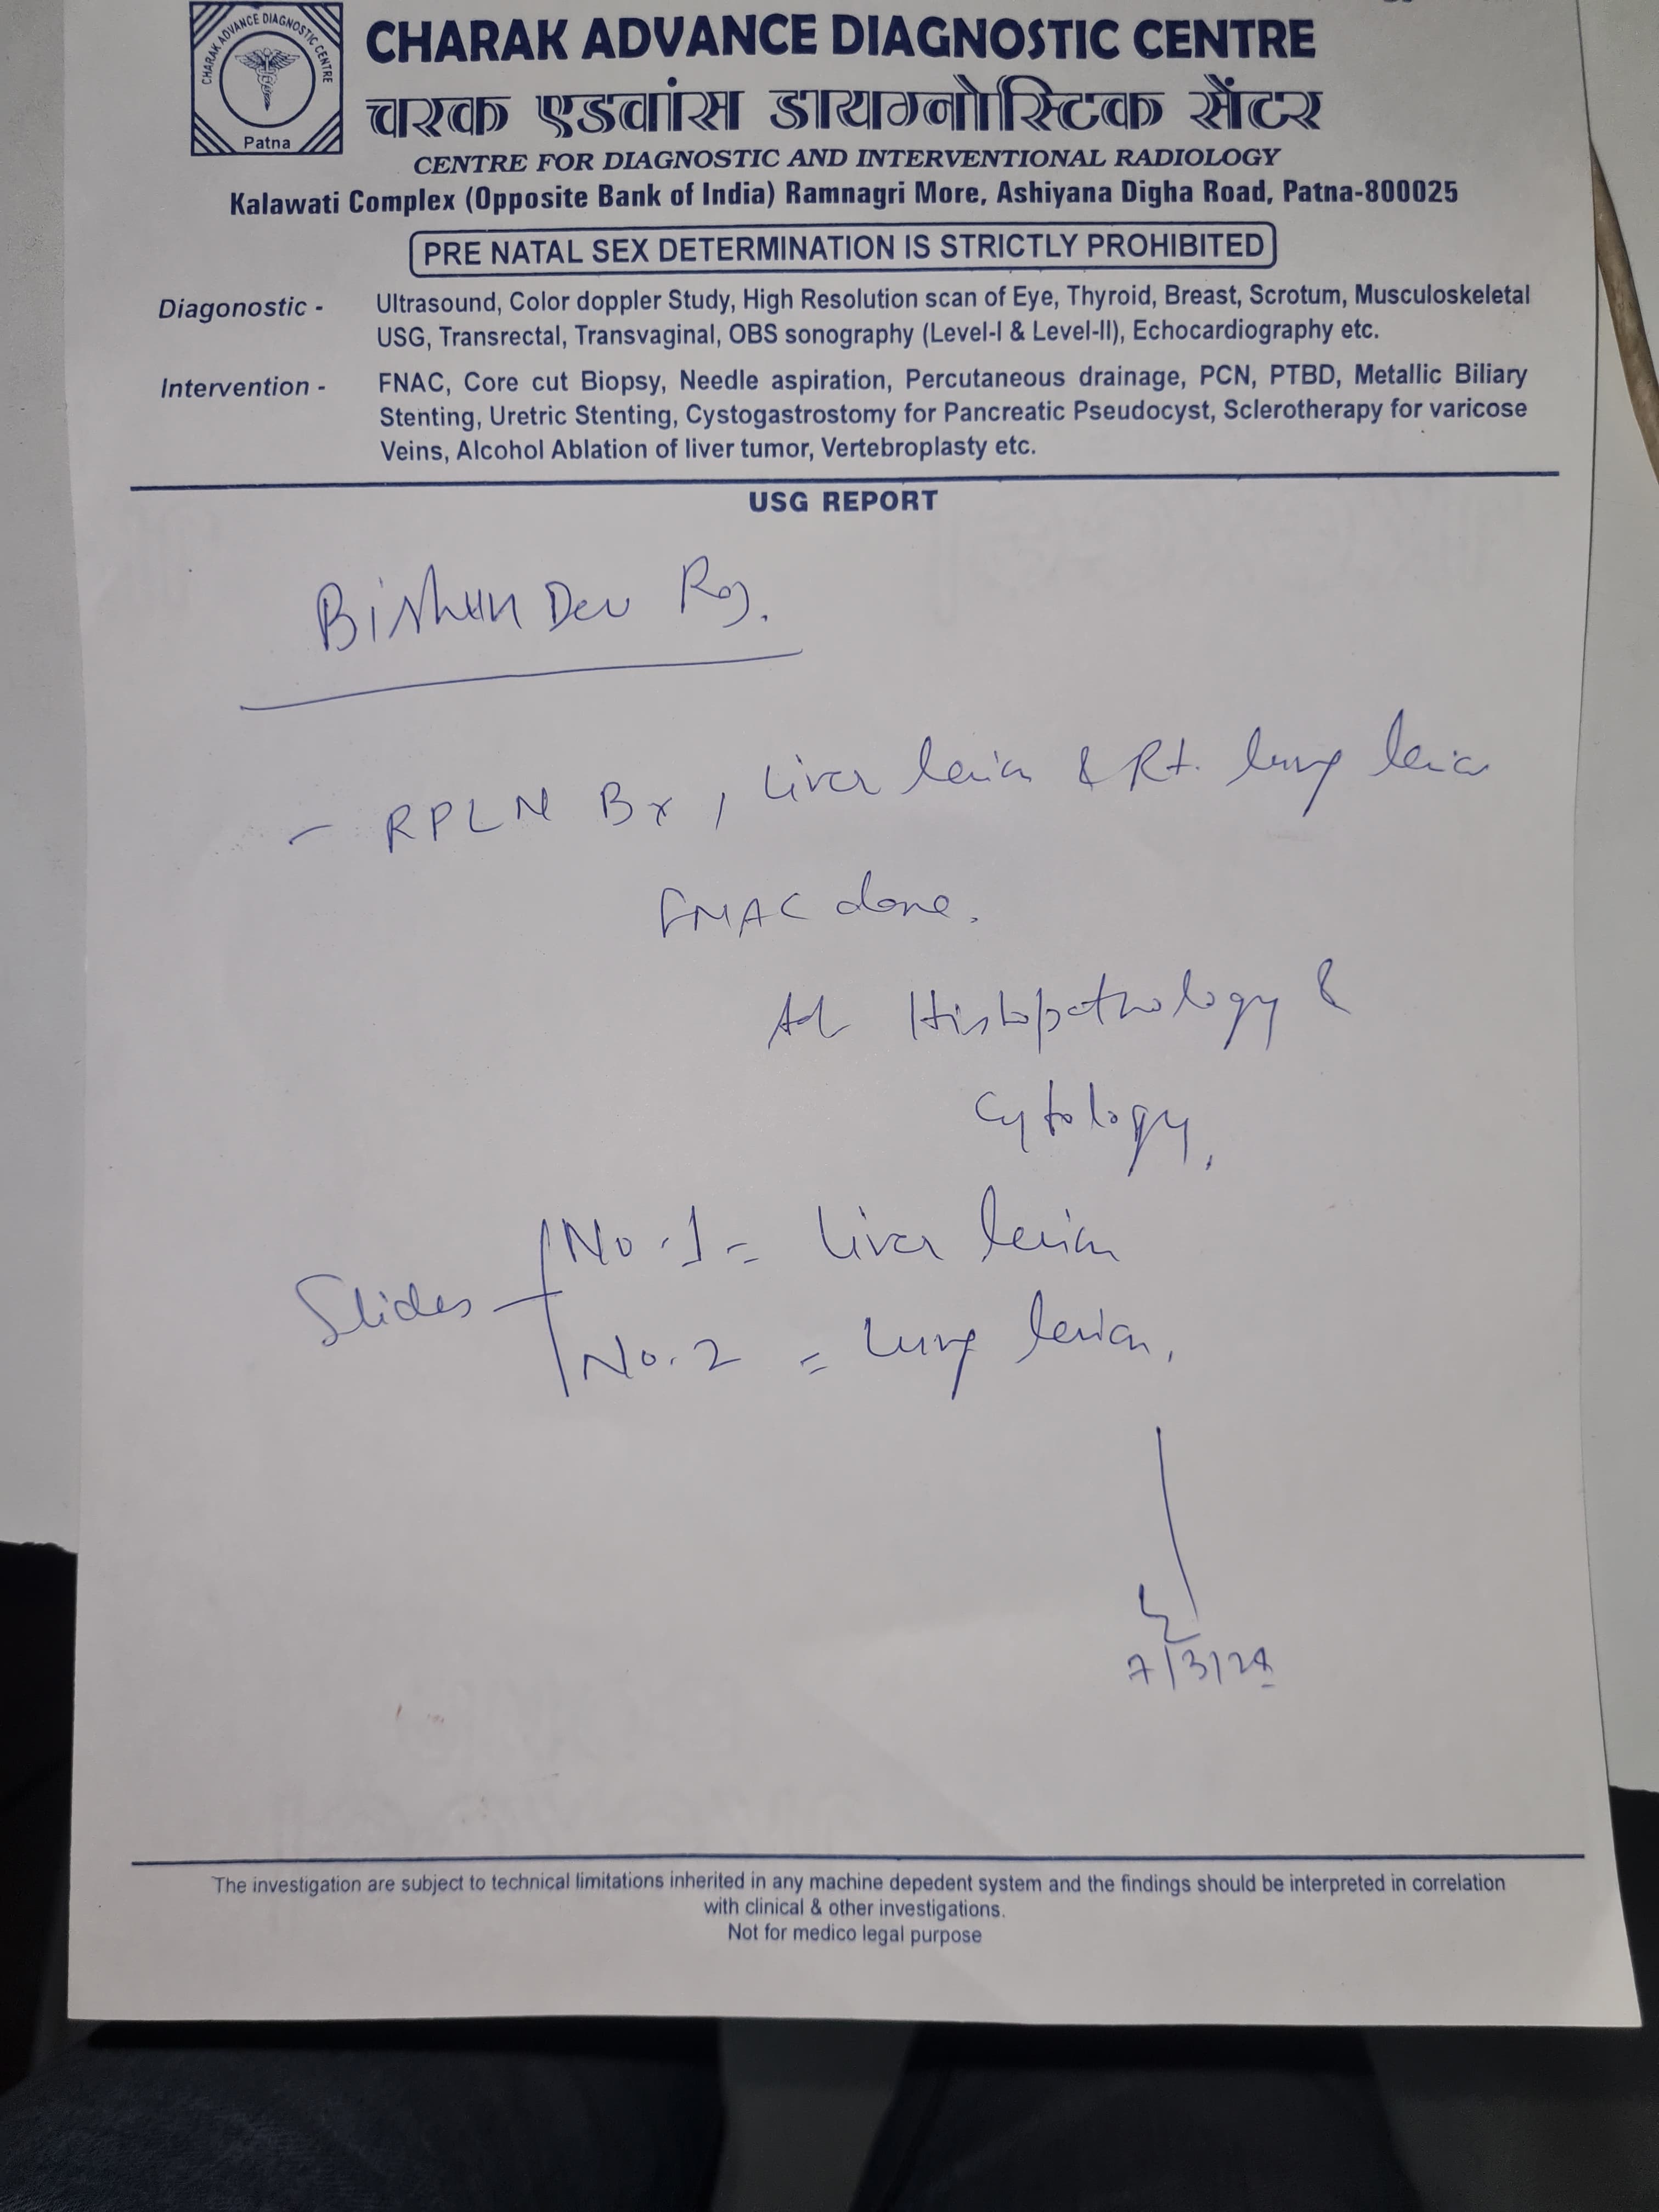 CHARAK ADVANCE DIAGNOSTIC CENTRE
Patna
CHARAK ADVANCE DIAGNOSTIC CENTRE
चरक एडवांस डायग्नोस्टिक सेंटर
CENTRE FOR DIAGNOSTIC AND INTERVENTIONAL RADIOLOGY
Kalawati Complex (Opposite Bank of India) Ramnagri More, Ashiyana Digha Road, Patna-800025
PRE NATAL SEX DETERMINATION IS STRICTLY PROHIBITED
Diagonostic - Ultrasound, Color doppler Study, High Resolution scan of Eye, Thyroid, Breast, Scrotum, Musculoskeletal
USG, Transrectal, Transvaginal, OBS sonography (Level-I & Level-II), Echocardiography etc.
Intervention - FNAC, Core cut Biopsy, Needle aspiration, Percutaneous drainage, PCN, PTBD, Metallic Biliary
Stenting, Uretric Stenting, Cystogastrostomy for Pancreatic Pseudocyst, Sclerotherapy for varicose
Veins, Alcohol Ablation of liver tumor, Vertebroplasty etc.
USG REPORT
Bishun Dev
- RPLN Bx, Liver lesion & Rt. lung lesion
FNAC done.
Ad Histopathology &
Cytology,
Slides No.1 = Liver lesion
No.2 = Lung lesion.
7/3/24
The investigation are subject to technical limitations inherited in any machine depedent system and the findings should be interpreted in correlation
with clinical & other investigations.
Not for medico legal purpose